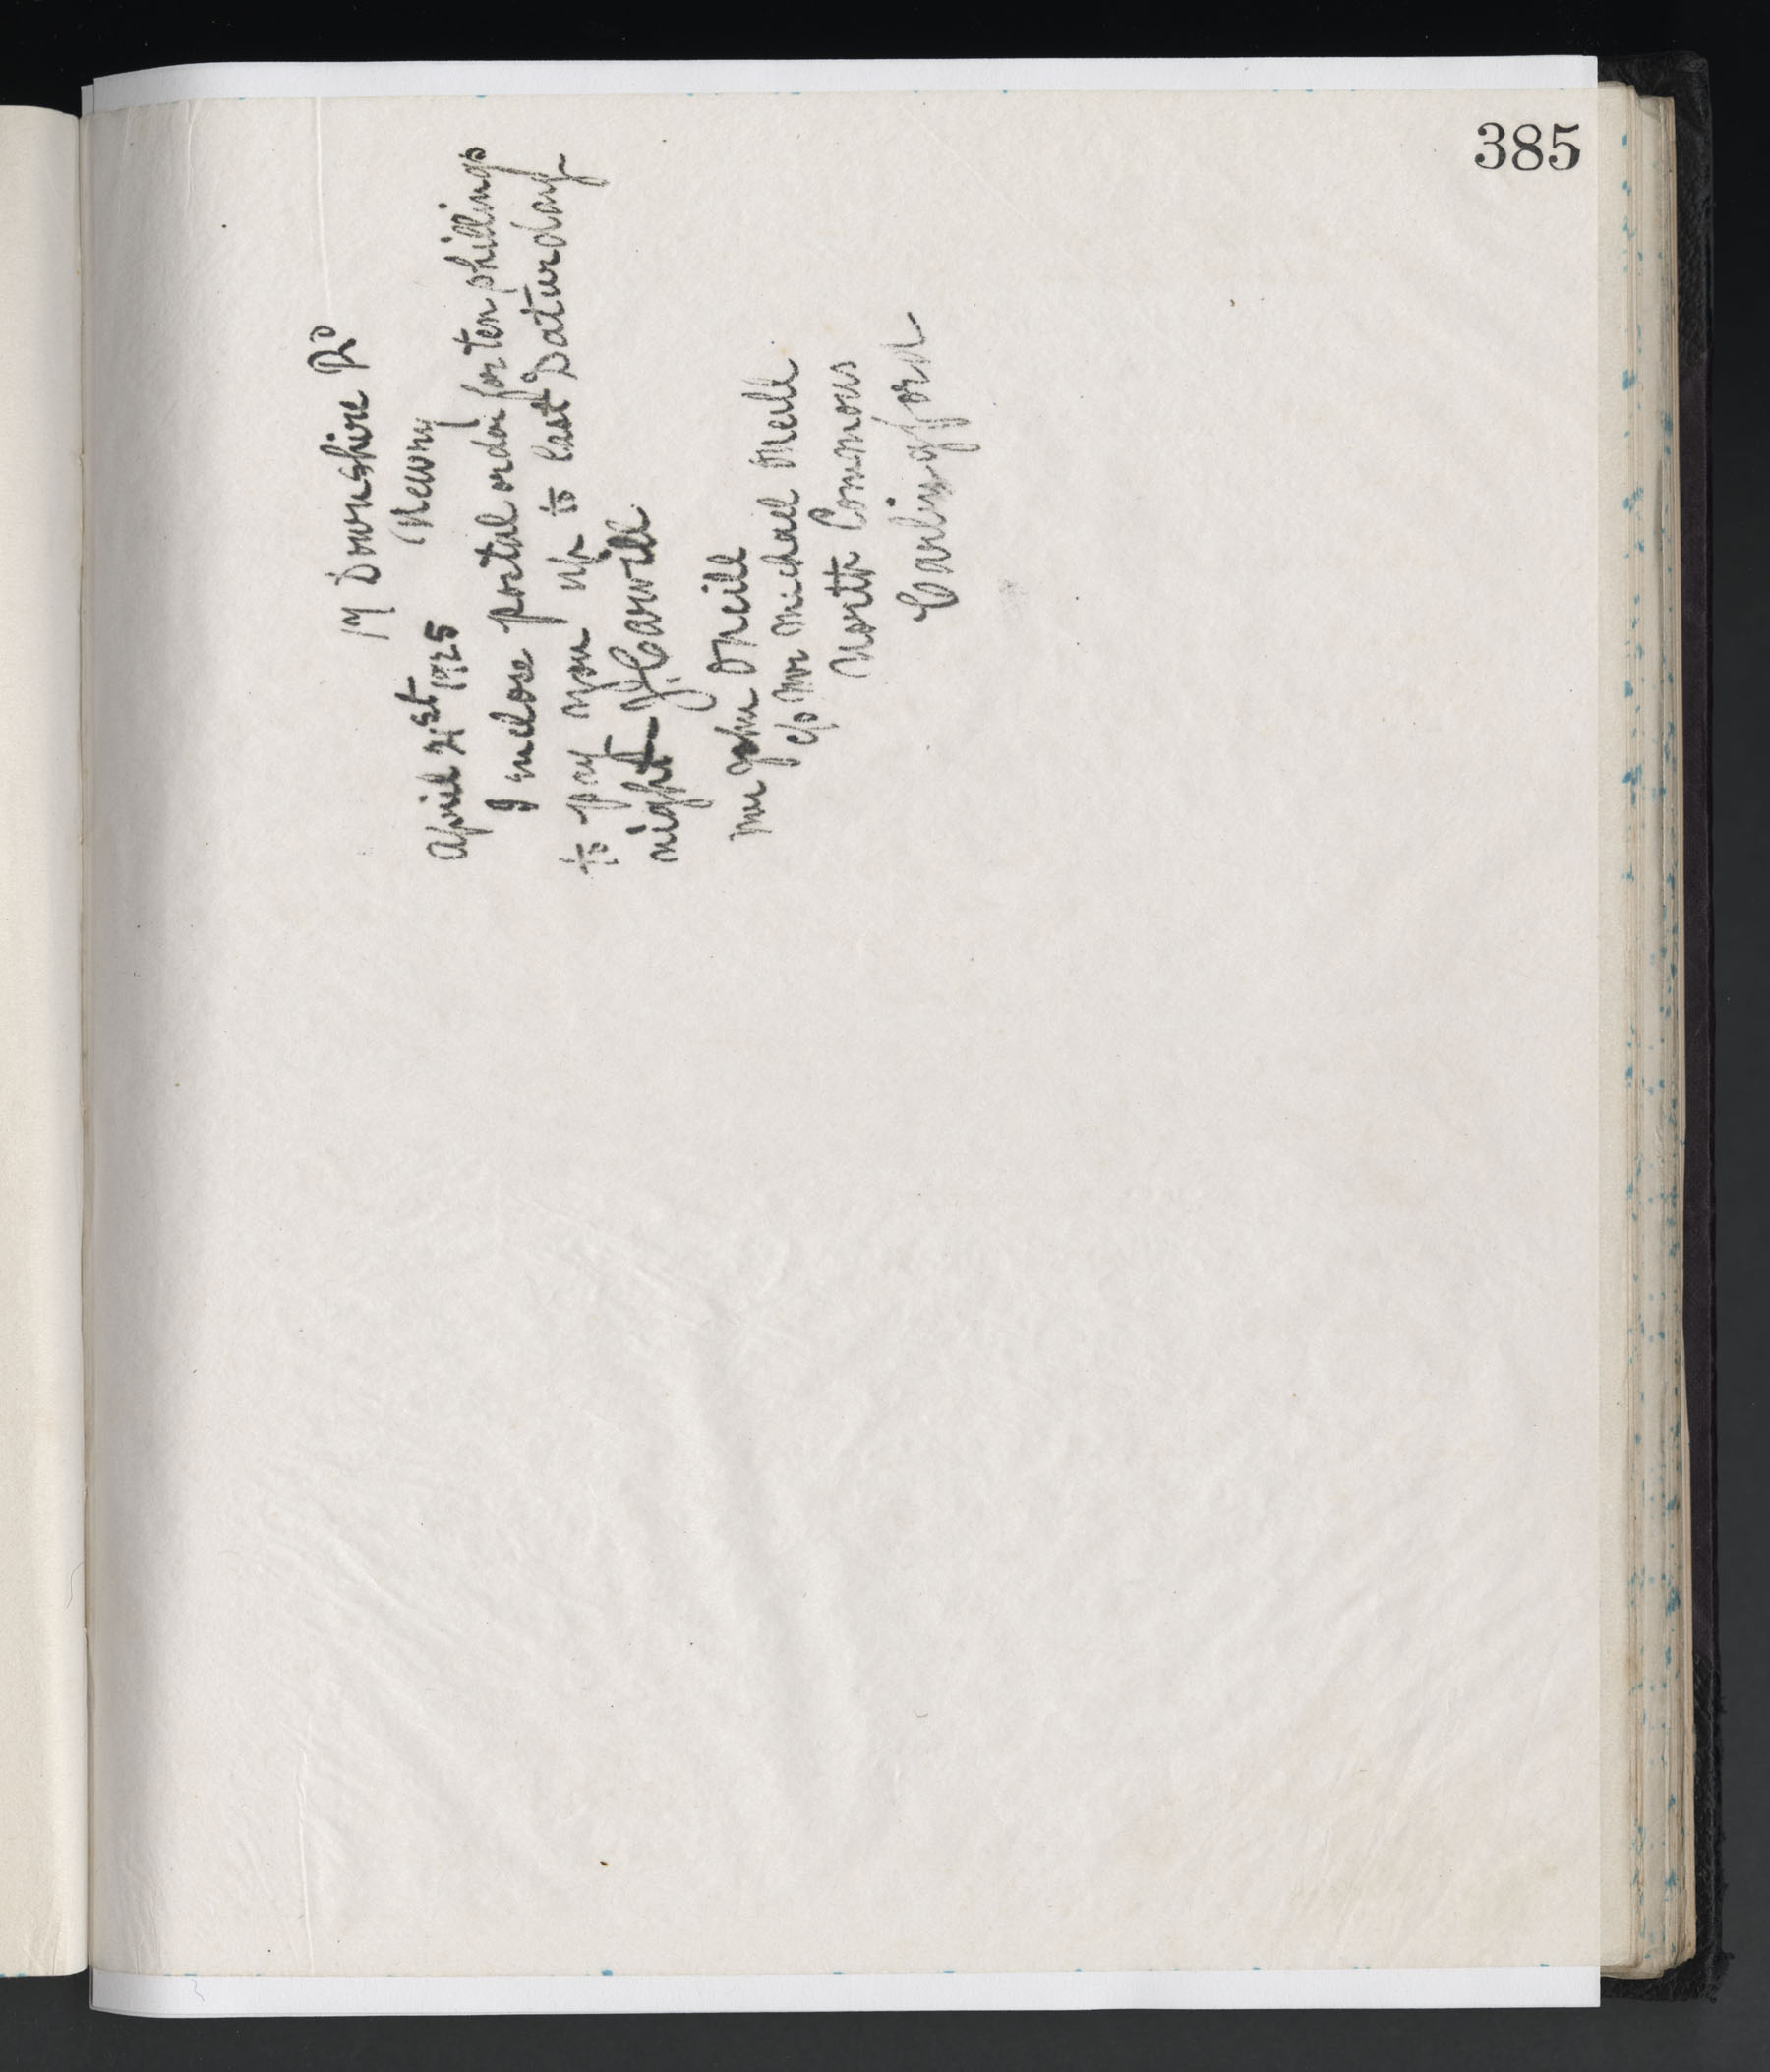 385
17 Downshire Rd
Newry
April 21st 1925
I enclose postal order for ten shillings
to pay you up to last Saturday
night J.F. Carvill
Mr John O'Neill
c/o Mr Michael O'Neill
North Commons
Carlingford